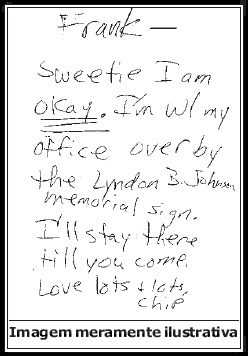 Frank —
Sweetie I am
okay. I'm w/ my
office over by
the Lyndon B. Johnson
memorial sign.
I'll stay there
till you come.
Love lots & lots,
chip
Imagem meramente ilustrativa